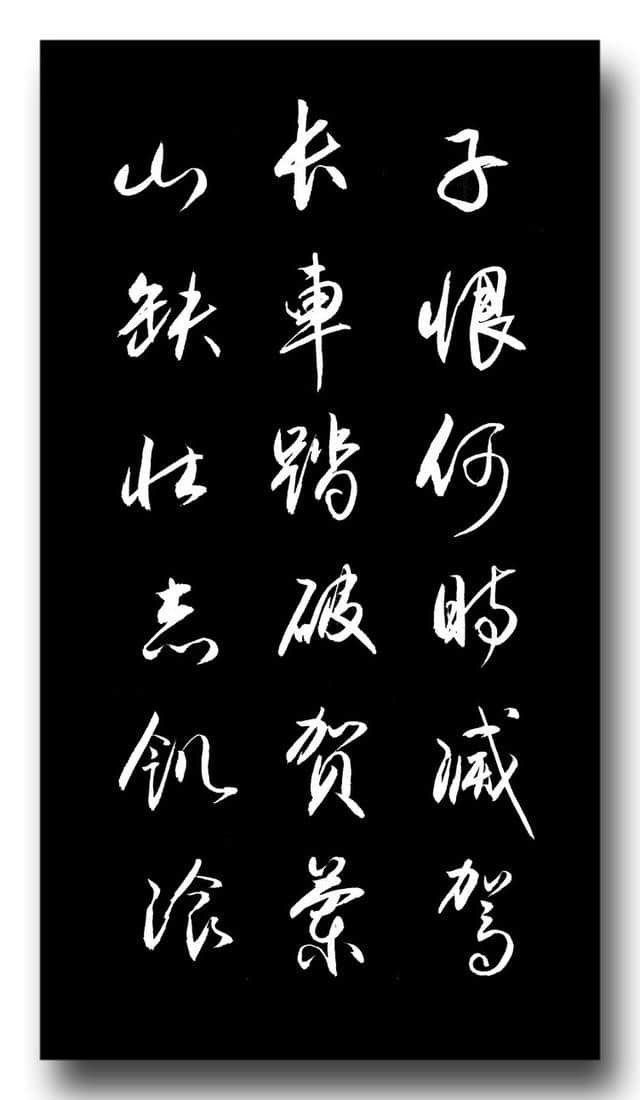 子恨何時滅駕
长車踏破贺蘭
山缺壮志飢湌